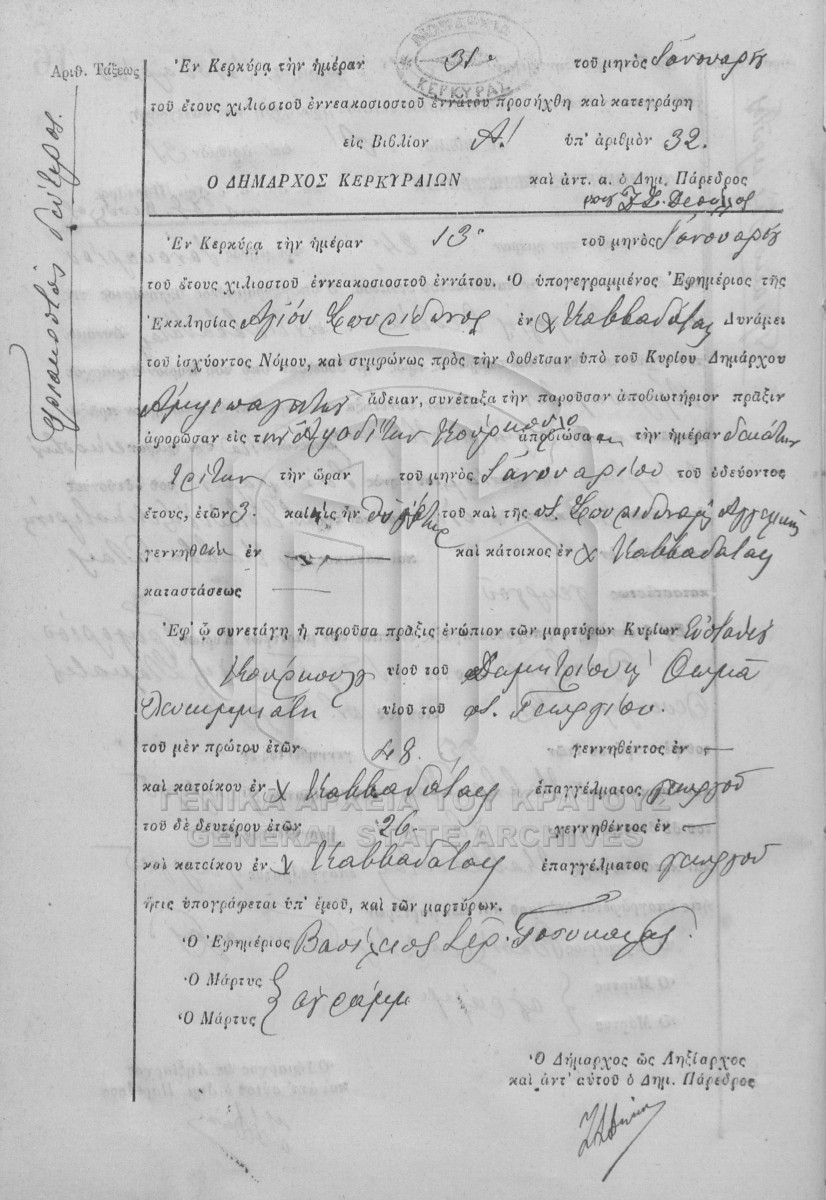 ΔΗΜΑΡΧΙΑ ΚΕΡΚΥΡΑΣ
Ἀριθ. Τάξεως
τριακοστὸς δεύτερος.
Ἐν Κερκύρᾳ τὴν ἡμέραν 31ῃ τοῦ μηνὸς Ἰανουαρίου
τοῦ ἔτους χιλιοστοῦ ἐννεακοσιοστοῦ ἐννάτου προσήχθη καὶ κατεγράφη
εἰς Βιβλίον Α! ὑπ' ἀριθμὸν 32.
Ο ΔΗΜΑΡΧΟΣ ΚΕΡΚΥΡΑΙΩΝ καὶ ἀντ. α. ὁ Δημ. Πάρεδρος
Ἐν Κερκύρᾳ τὴν ἡμέραν 13ῃ τοῦ μηνὸς Ἰανουαρίου
τοῦ ἔτους χιλιοστοῦ ἐννεακοσιοστοῦ ἐννάτου. Ὁ ὑπογεγραμμένος Ἐφημέριος τῆς
Ἐκκλησίας Ἁγίου Σπυρίδωνος ἐν χ Καββαδάταις Δυνάμει
τοῦ ἰσχύοντος Νόμου, καὶ συμφώνως πρὸς τὴν δοθεῖσαν ὑπὸ τοῦ Κυρίου Δημάρχου
ἄδειαν, συνέταξα τὴν παροῦσαν ἀποβιωτήριον πρᾶξιν
ἀφορῶσαν εἰς τὴν Ἀφροδίτην Κούρκουλο ἀποβιώσασαν τὴν ἡμέραν δεκάτην
τρίτην τὴν ὥραν τοῦ μηνὸς Ἰανουαρίου τοῦ ὁδεύοντος
ἔτους, ἐτῶν 3. καὶ ἥτις ἦν θυγάτηρ τοῦ καὶ τῆς Σπυρίδωνος Ἀγγελικῆς
γεννηθεῖσα ἐν — καὶ κάτοικος ἐν χ Καββαδάταις
καταστάσεως —
Ἐφ' ᾧ συνετάγη ἡ παροῦσα πρᾶξις ἐνώπιον τῶν μαρτύρων Κυρίων Εὐσταθίου
Κούρκουλο υἱοῦ τοῦ Δημητρίου κ' Θωμᾶ
υἱοῦ τοῦ π. Γεωργίου.
τοῦ μὲν πρώτου ἐτῶν 48. γεννηθέντος ἐν —
καὶ κατοίκου ἐν χ Καββαδάταις ἐπαγγέλματος γεωργοῦ
ΓΕΝΙΚΑ ΑΡΧΕΙΑ ΤΟΥ ΚΡΑΤΟΥΣ
τοῦ δὲ δευτέρου ἐτῶν 26. γεννηθέντος ἐν —
GENERAL STATE ARCHIVES
καὶ κατοίκου ἐν χ Καββαδάταις ἐπαγγέλματος γεωργοῦ
ἥτις ὑπογράφεται ὑπ' ἐμοῦ, καὶ τῶν μαρτύρων.
Ὁ Ἐφημέριος Βασίλειος Ἱερ.
Ὁ Μάρτυς
ἀγράμμ
Ὁ Μάρτυς
Ὁ Δήμαρχος ὡς Ληξίαρχος
καὶ ἀντ' αὐτοῦ ὁ Δημ. Πάρεδρος